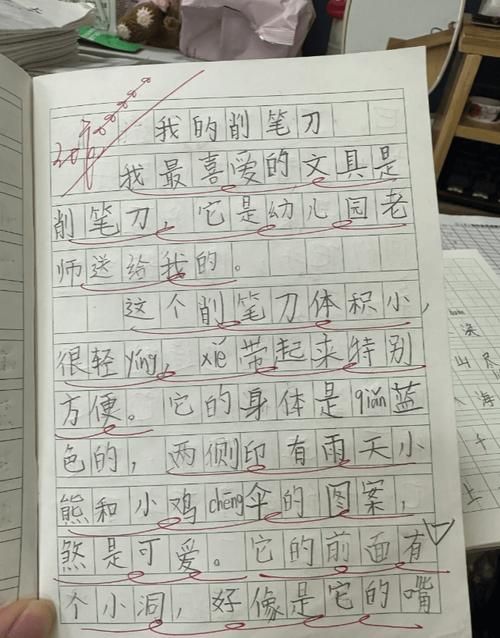 我的削笔刀
我最喜爱的文具是
削笔刀，它是幼儿园老
师送给我的。
这个削笔刀体积小，
很轻yíng，xié带起来特别
方便。它的身体是qiǎn蓝
色的，两侧印有雨天小
熊和小鸡chēng伞的图案，
煞是可爱。它的前面有
个小洞，好像是它的嘴